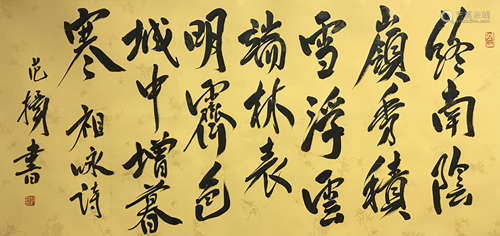 終南陰
嶺秀積
雪浮雲
端林表
明霽色
城中增暮
寒 祖咏詩
范 書